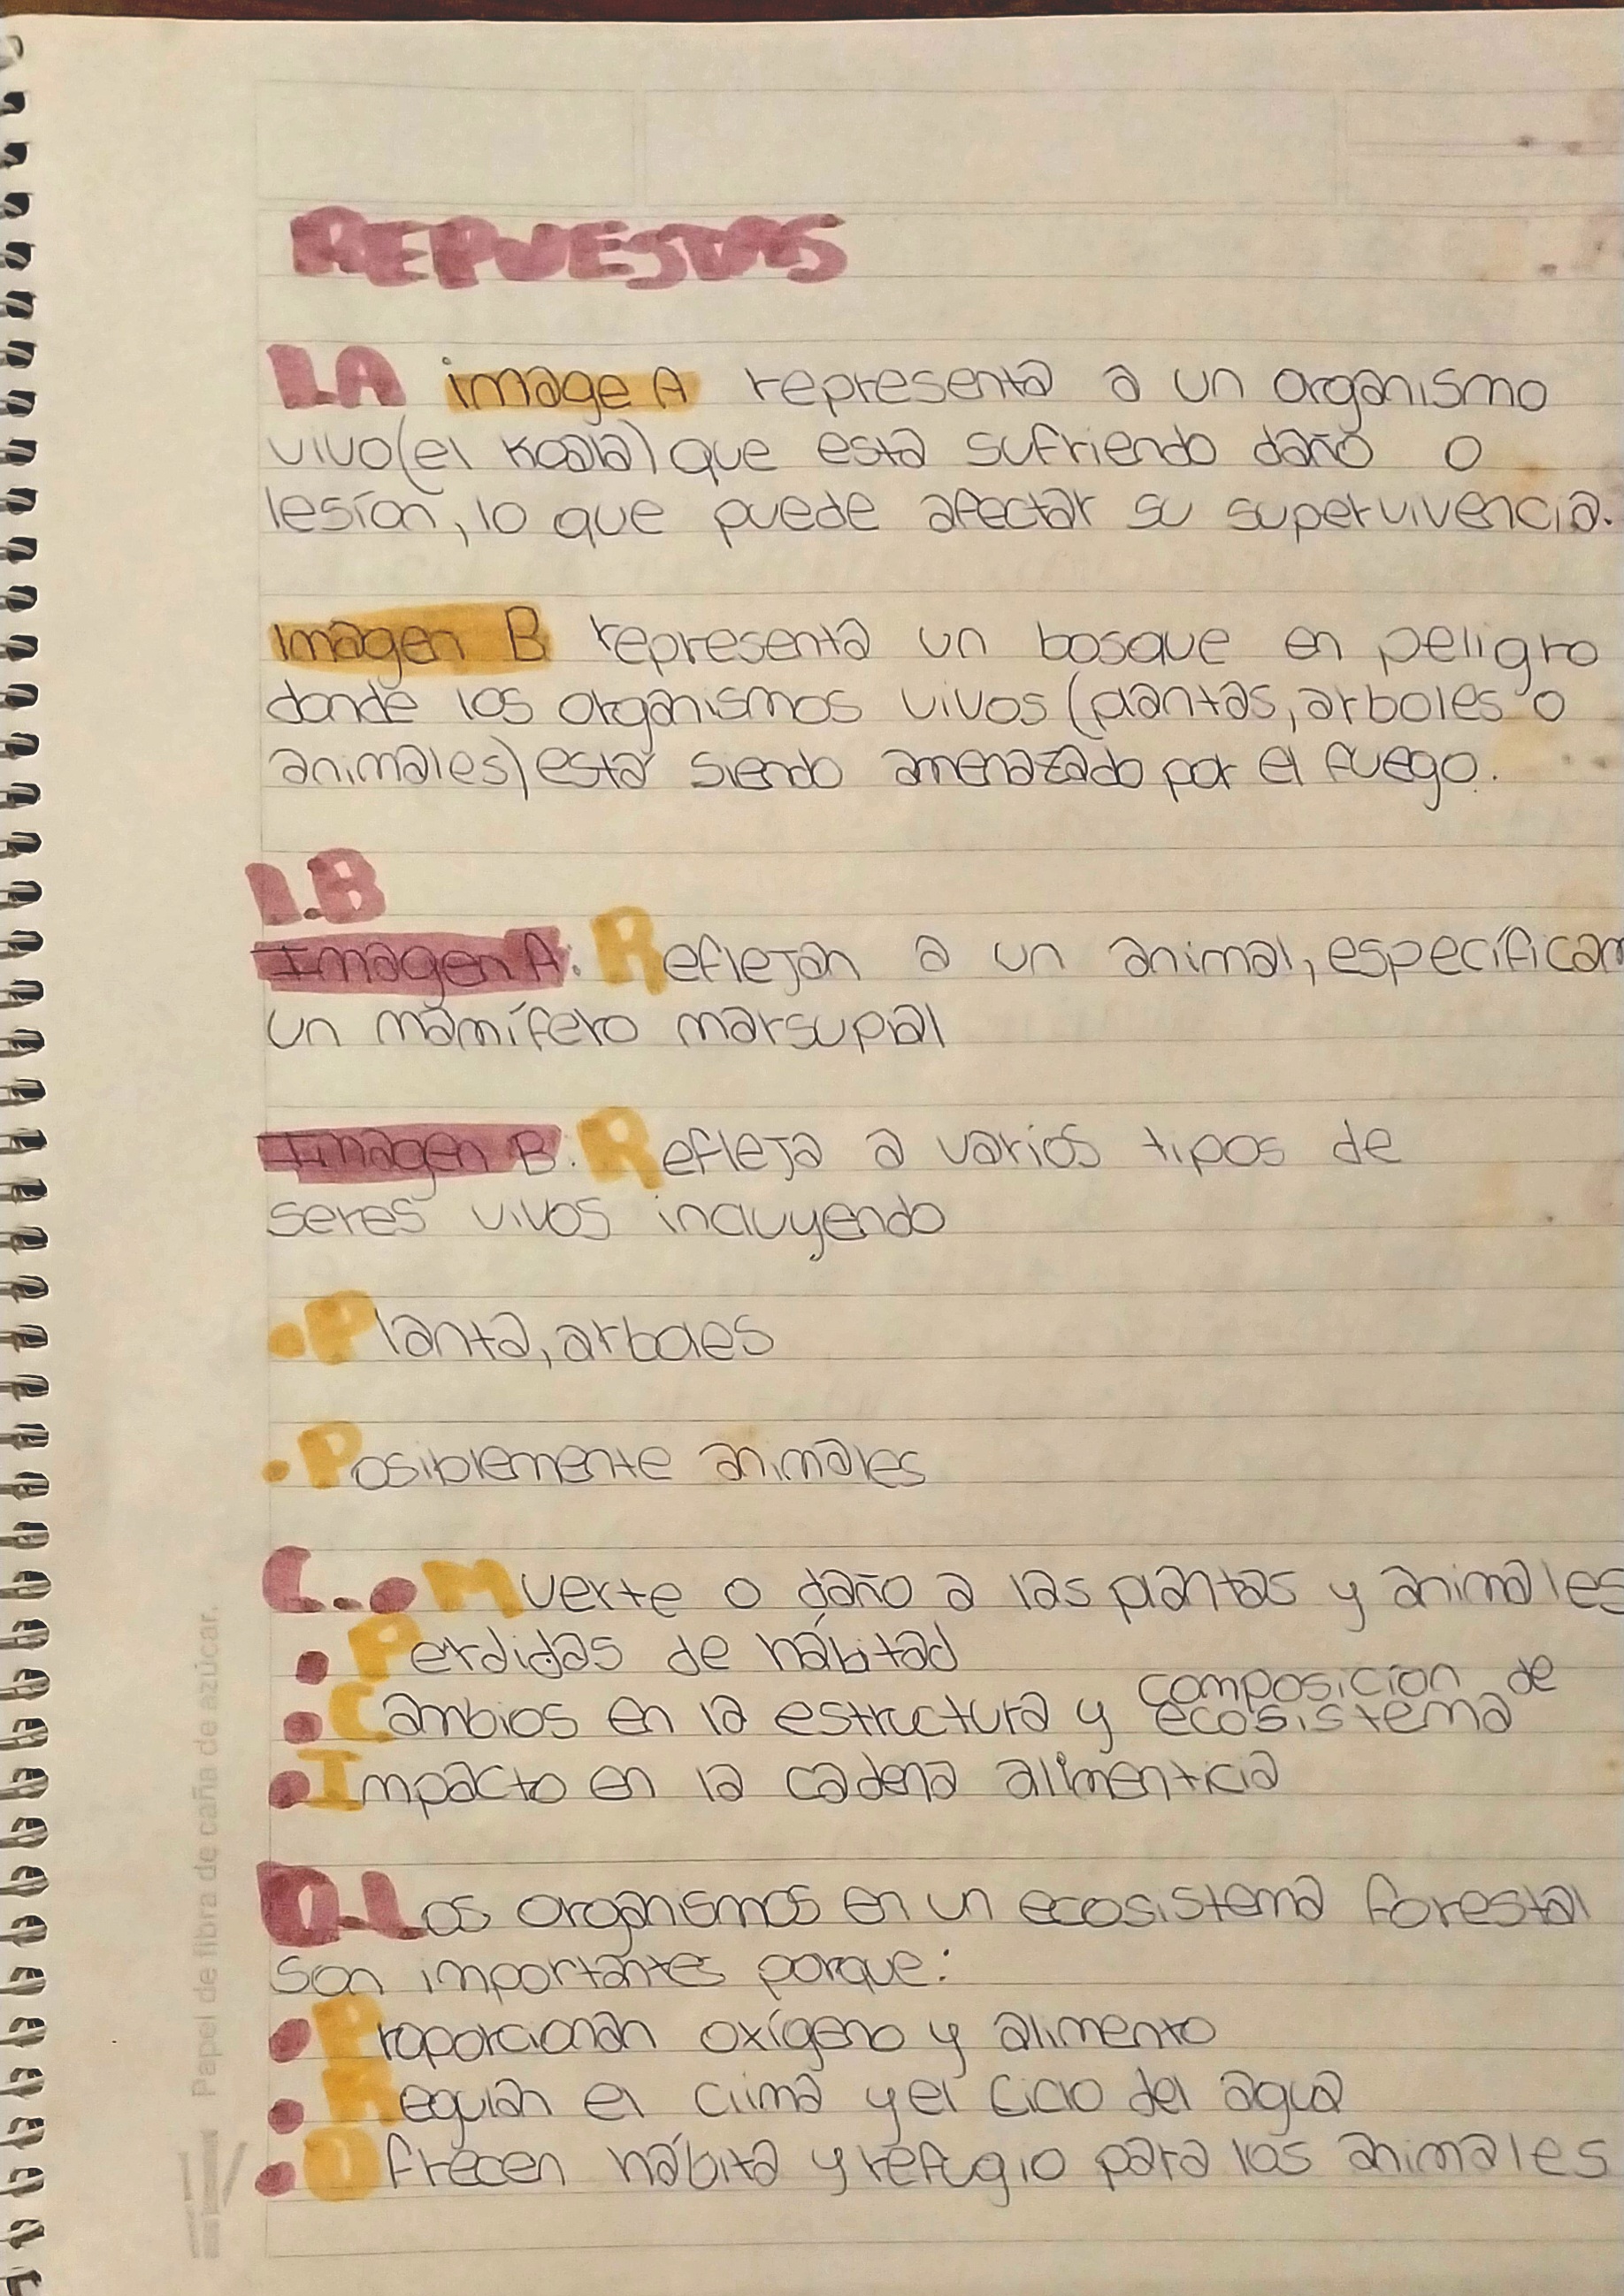 REPUESTAS
1.A image A representa a un organismo
vivo(el koala) que esta sufriendo daño o
lesíon, lo que puede afectar su supervivencia.
Imagen B representa un bosque en peligro
donde los organismos vivos (plantas, arboles o
animales) está siendo amenazado por el fuego.
1.B
Imagen A: Reflejan a un animal, específicam
un mamífero marsupial
Imagen B: Refleja a varios tipos de
seres vivos incluyendo
• Planta, arboles
• Posiblemente animales
C. • Muerte o daño a las plantas y animales
• Perdidas de hábitad
• Cambios en la estructura y composición de
ecosistema
• Impacto en la cadena alimenticia
D. Los organismos en un ecosistema forestal
son importantes porque:
• Proporcionan oxígeno y alimento
• Regulan el clima y el ciclo del agua
• Ofrecen hábita y refugio para los animales
Papel de fibra de caña de azúcar.